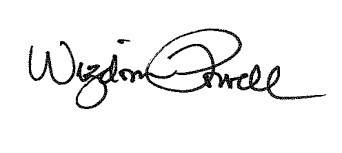 Wizdom Powell